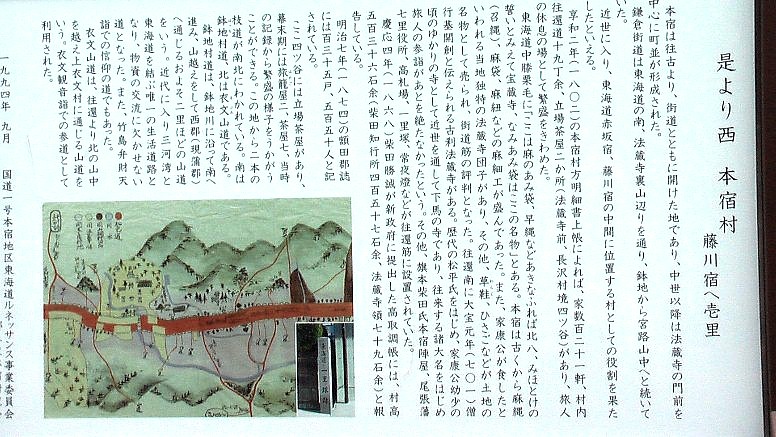 是より西 本宿村
藤川宿へ壱里
本宿は往古より、街道とともに開けた地であり、中世以降は法蔵寺の門前を
中心に町並が形成された。
鎌倉街道は東海道の南、法蔵寺裏山辺りを通り、鉢地から宮路山中へと続いて
いた。
近世に入り、東海道赤坂宿、藤川宿の中間に位置する村としての役割を果た
したといえる。
享和二年（一八〇二）の本宿村方明細書上帳によれば、家数百二十一軒、村内
往還道十九丁余、立場茶屋二か所（法蔵寺前、長沢村境四ツ谷）があり、旅人
の休息の場として繁盛をきわめた。
東海道中膝栗毛に「ここは麻のあみ袋、早縄などあきなふれば北八、みほとけの
誓いとみえて宝蔵寺、なみあみ袋はここの名物」とある。本宿は古くから麻縄
（召縄）、麻袋、麻紐などの麻細工が盛んであった。また、家康公が食したと
いわれる当地独特の法蔵寺団子があり、その他、草鞋、ひさごなどが土地の
名物として売られ、街道筋の評判となった。往還南に大宝元年（七〇一）僧
行基開創と伝えられる古刹法蔵寺がある。歴代の松平氏をはじめ、家康公幼少の
頃のゆかりの寺として近世を通して下馬の寺であり、往来する諸大名をはじめ
旅人の参詣があとを絶たなかったという。その他、旗本柴田氏本宿陣屋、尾張藩
七里役所、高札場、一里塚、常夜燈などが往還筋に設置されていた。
慶応四年（一八六八）柴田勝誠が新政府に提出した高取調帳には、村高
五百三十六石余（柴田知行所四百五十七石余、法蔵寺領七十九石余）と報
告している。
明治七年（一八七四）の額田郡誌
には百三十五戸、五百五十人と記
されている。
ここ四ツ谷には立場茶屋があり、
幕末期には旅籠屋二、茶屋七、当時
の記録から繁盛の様子をうかがう
ことができる。この地から二本の
枝道が南北にわかれている。南は
鉢地村道、北は衣文山道である。
鉢地村道は、鉢地川に沿って南へ
進み、山越えをして西郡（現蒲郡）
へ通じるおよそ二里ほどの山道
をいう。近代に入り三河湾と
東海道を結ぶ唯一の生活道路と
なり、物資の交流に欠かせない
道となった。また、竹島弁財天
詣での信仰の道でもあった。
衣文山道は、往還より北の山中
を越え上衣文村に通じる山道を
いう。衣文観音詣での参道として
利用された。
一九九四年 九月 国道一号本宿地区東海道ルネッサンス事業委員会